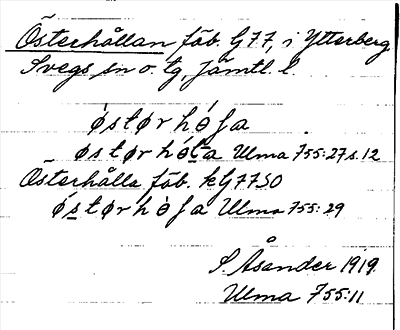 Österhållan fäb. G77, i Ytterberg
Svegs sn o. tg, Jämtl. l.
østørhóʃa
østørhóta Ulma 755:27 s. 12
Österhålla fäb. kG77SO
østørhòʃa Ulma 755:29
S. Åsander 1919.
Ulma 755:11